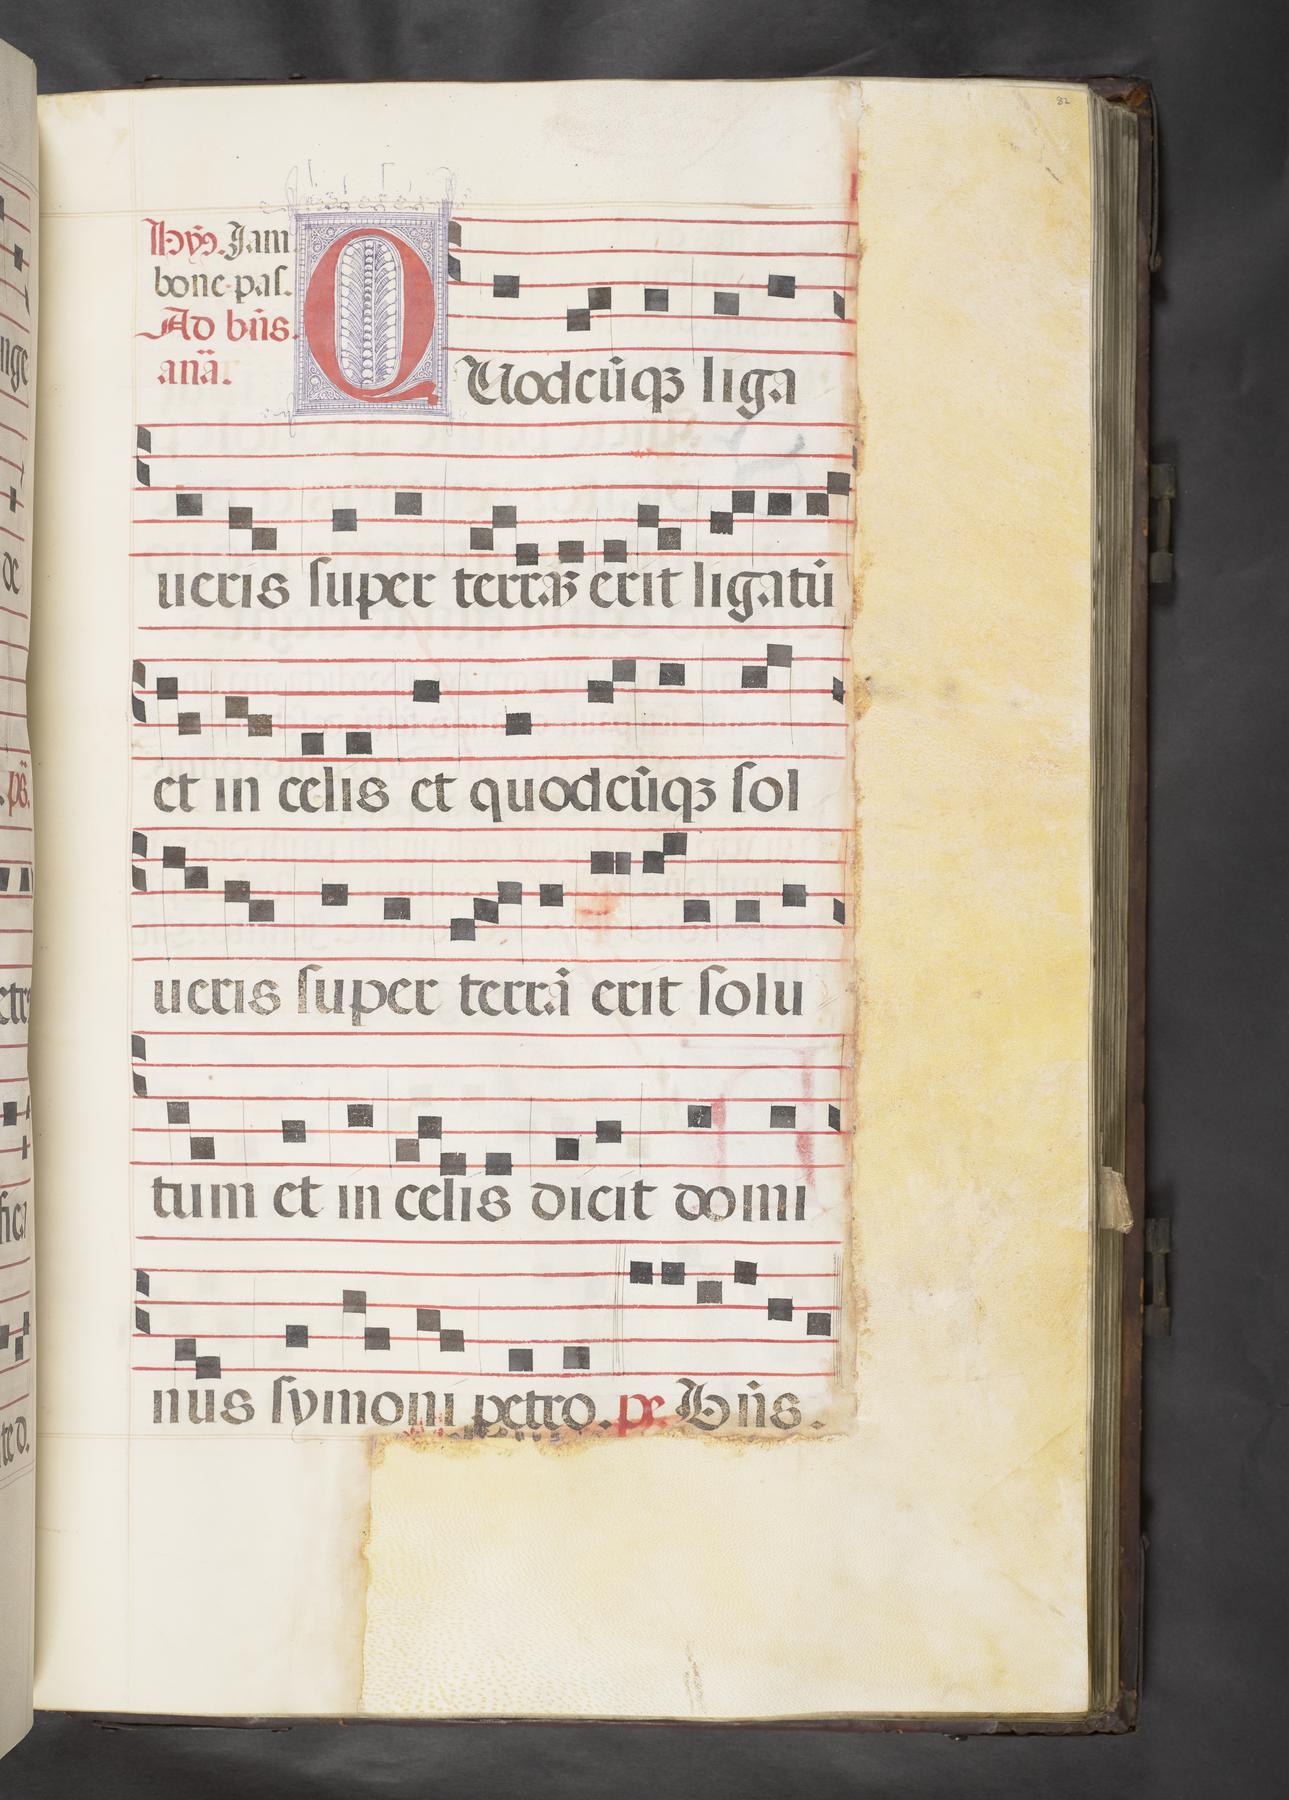 82
hȳ9. Jam
bone pas.
Ad bn̄s.
anā.
QUodcūqꝫ liga
ueris super terrāꝫ erit ligatū
et in celis et quodcūqꝫ sol
ueris super terrā erit solu
tum et in celis dicit domi
nus symoni petro. ps. Bn̄s.